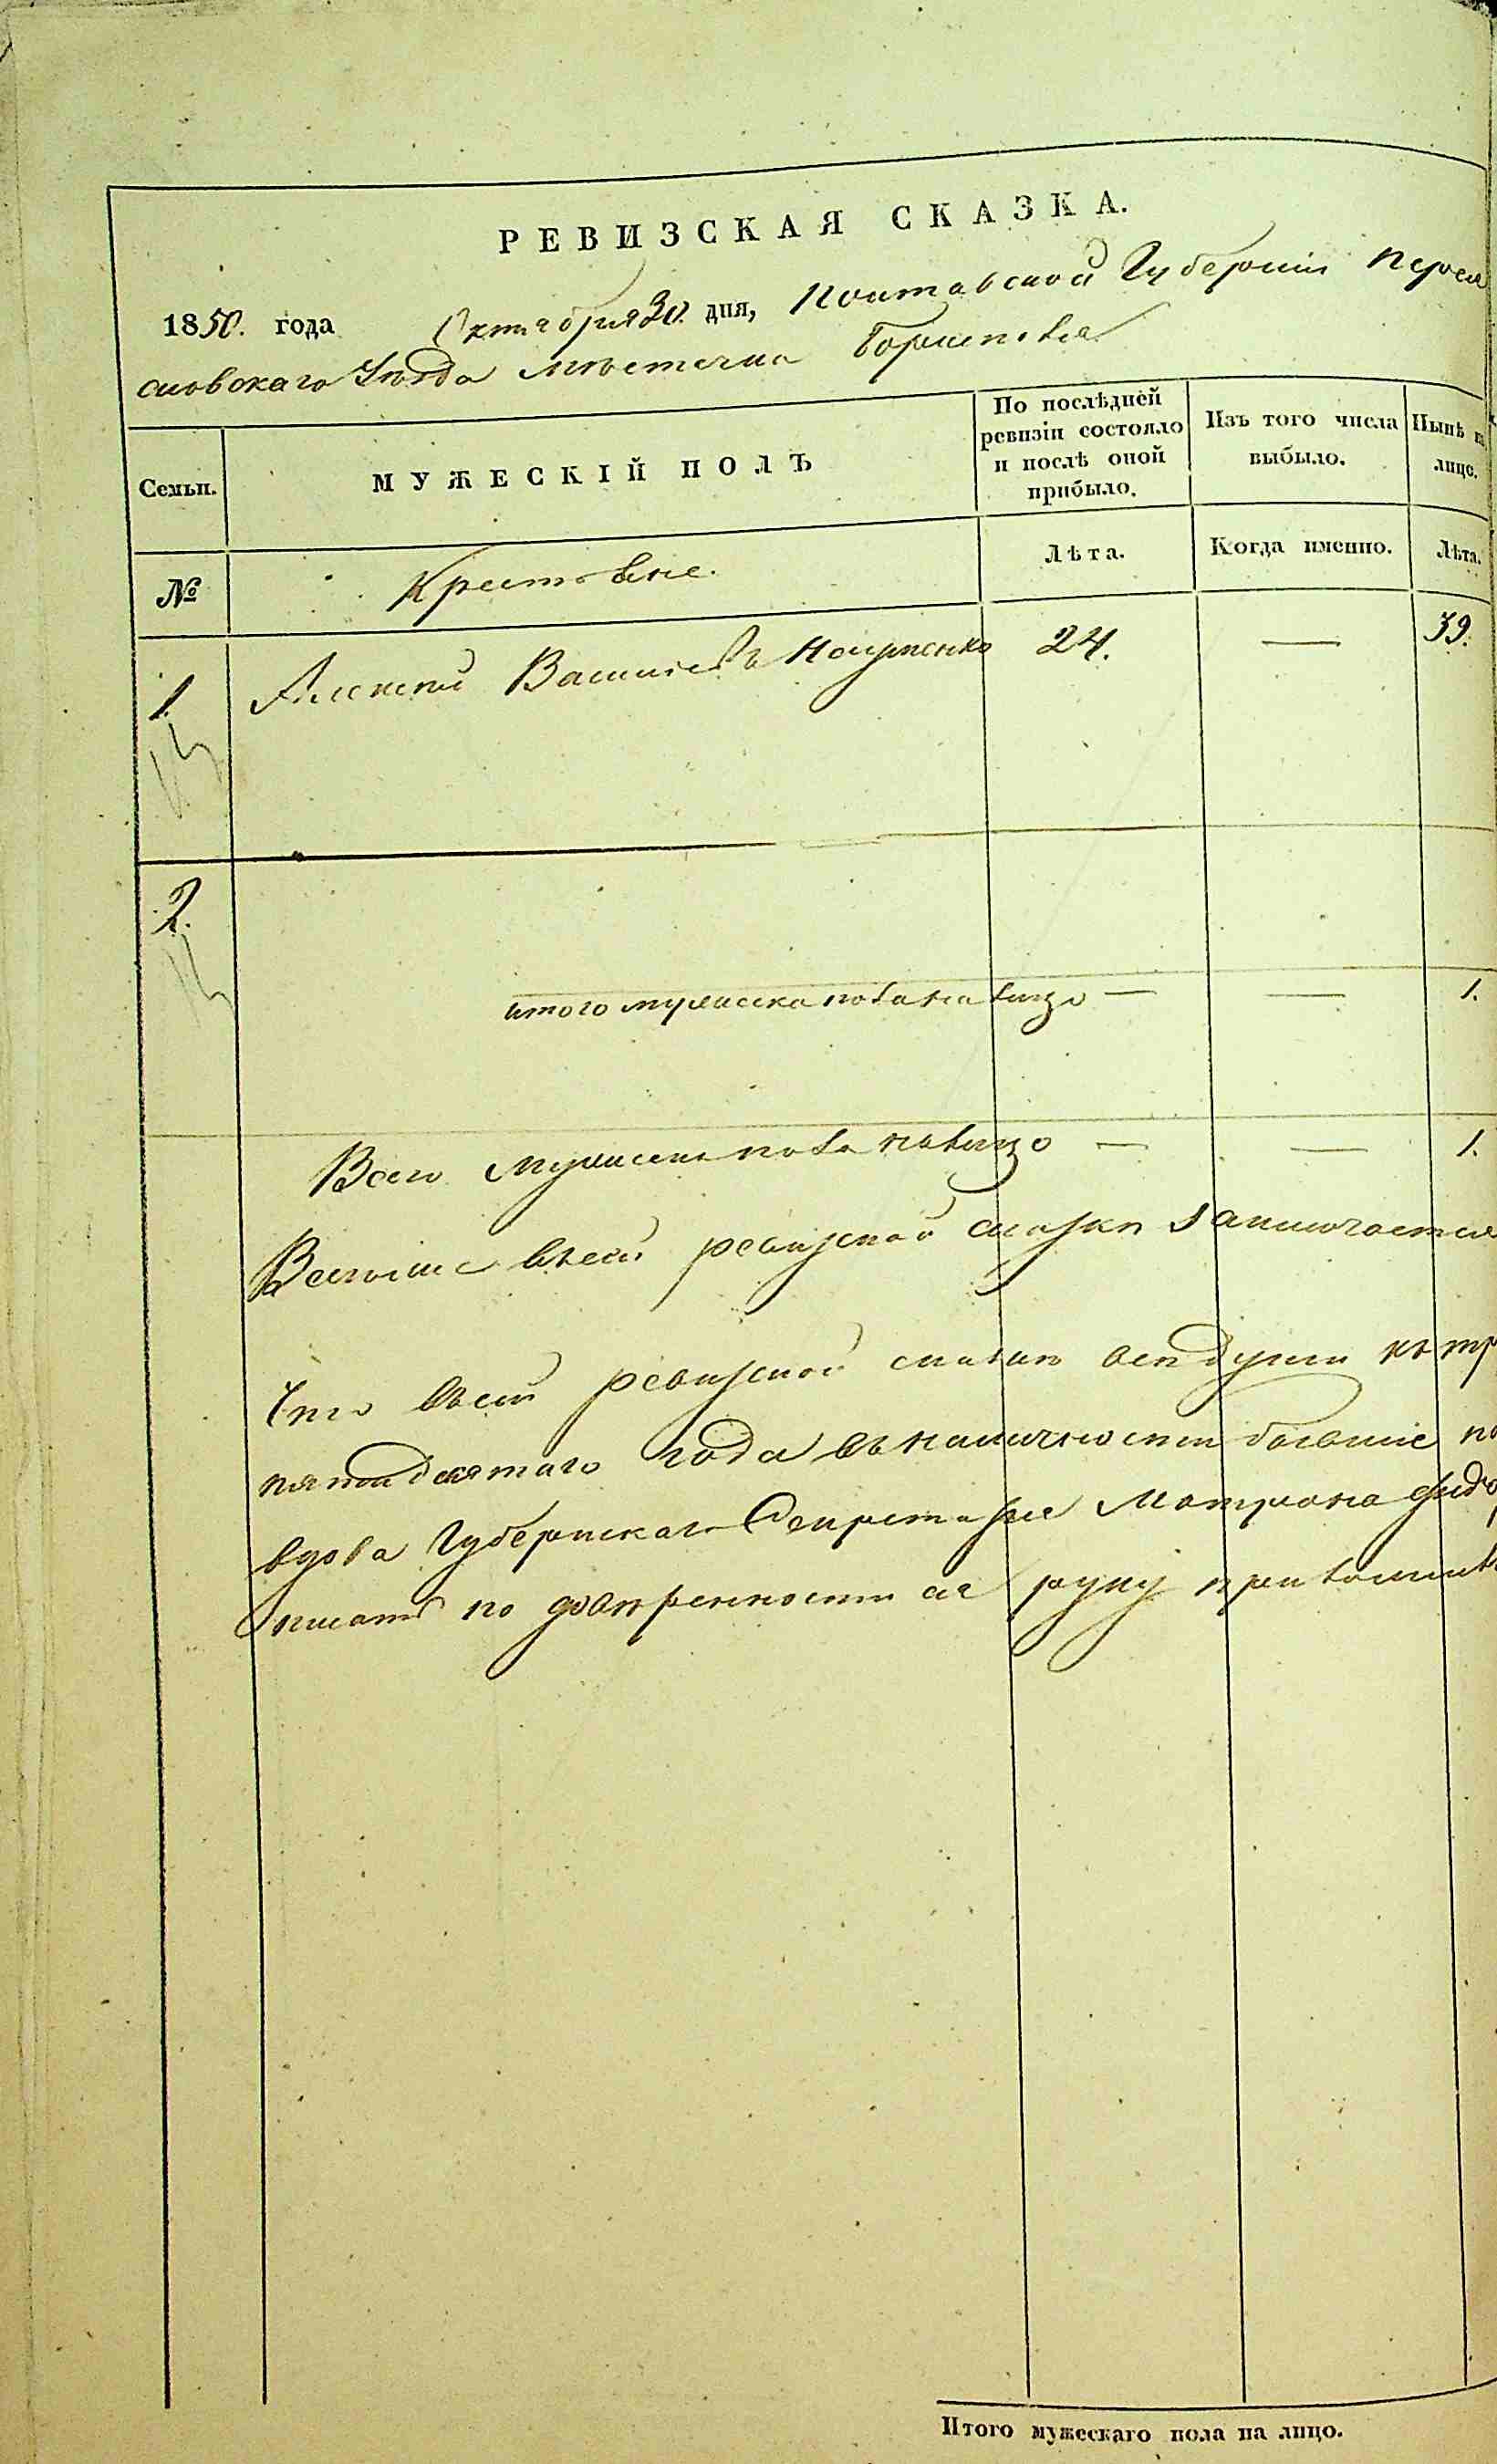 РЕВИЗСКАЯ СКАЗКА.
1850. года Октября 30. дня, Полтавской Губерніи Перея
словскаго Уѣзда мѣстечка Борисполя
Семьи.
МУЖЕСКІЙ ПОЛЪ
По послѣдней
ревизіи состояло
и послѣ оной
прибыло.
Изъ того числа
выбыло.
Нынѣ на
лицо.
№
Крестьяне.
Лѣта.
Когда именно.
Лѣта.
1. Алексѣй Васильевъ 24. — 39.
2.
итого мужеска пола на лицо — — 1.
Всего мужеска пола налицо — — 1.
Всего въсей ревизской сказки заключается
Что въсей ревизской сказки всѣ души къ тр
пятидесятаго года въ наличности бывшіе по
вдова Губернскаго Секретаря Матрона Федо
по довѣренности ея руку приложилъ
Итого мужескаго пола на лицо.